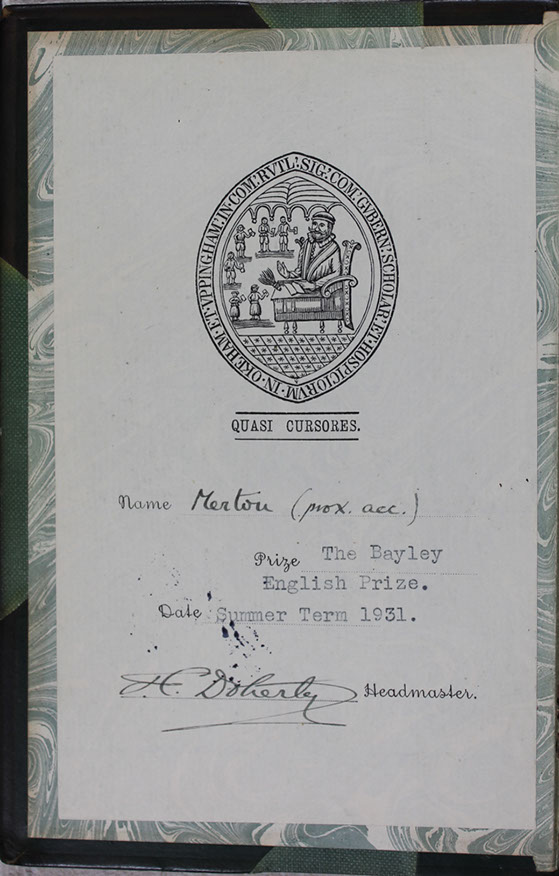 SIG: COM: GVBERN: SCHOLAR: ET·HOSPICIORVM·IN·OKEHAM·ET·VPPINGHAM·IN·COM: RVTL:
QUASI CURSORES.
Name Merton (prox. acc.)
Prize The Bayley
English Prize.
Date Summer Term 1931.
H.C. Doherty Headmaster.